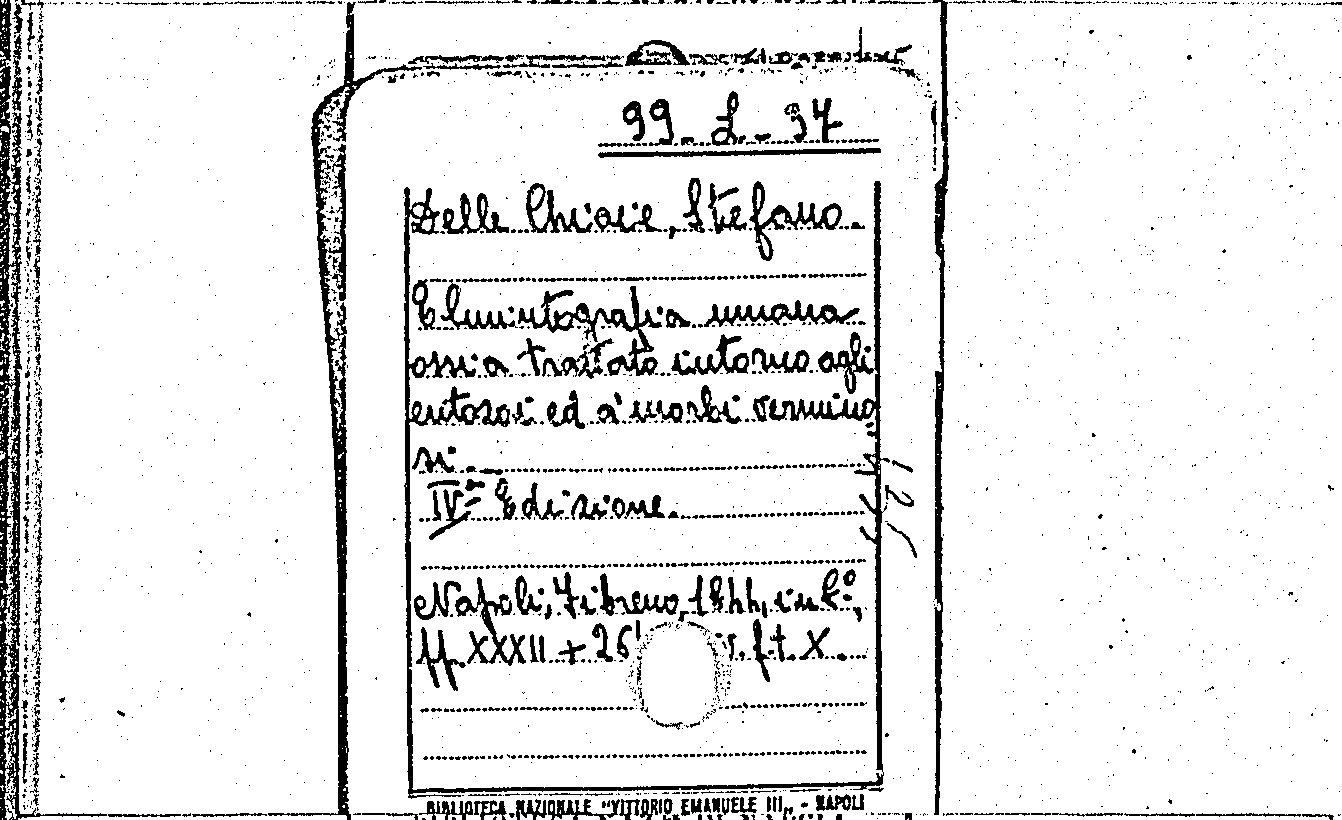 99. L. 37
Delle Chiaie, Stefano.
Elmintografia umana
ossia trattato intorno agli
entozoi ed a' morbi vermino
si.
IVª Edizione.
Napoli, Fibreno, 1844, in 8º,
pp. XXXII + 26 f.t. X.
BIBLIOTECA NAZIONALE "VITTORIO EMANUELE III" - NAPOLI